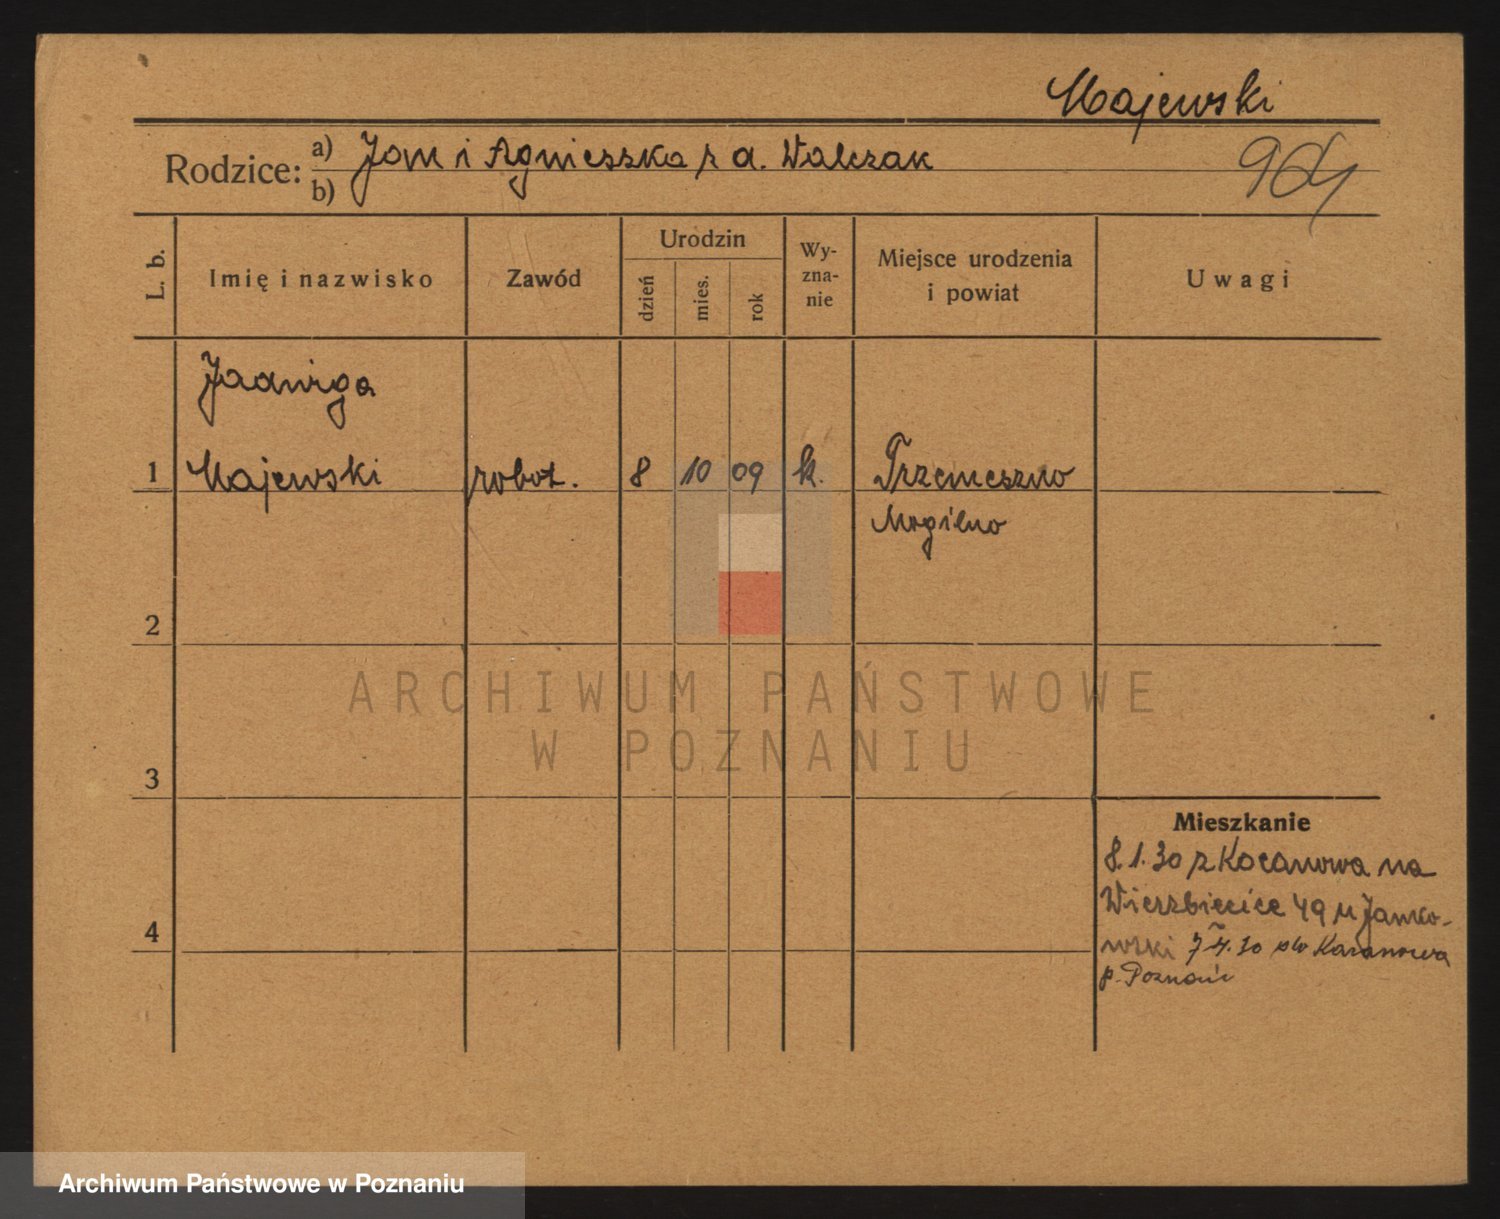 Majewski
Rodzice: a) Jan i Agnieszka z d. Walczak
b)
964
L. b.
Imię i nazwisko
Zawód
Urodzin
dzień
mies.
rok
Wy-
zna-
nie
Miejsce urodzenia
i powiat
Uwagi
Jadwiga
1 Majewski robot. 8 10 09 k. Trzemeszno
Mogilno
2
ARCHIWUM PAŃSTWOWE
W POZNANIU
3
Mieszkanie
8.1.30 z Kocanowa na
Wierzbięcice 49 u Janko-
wski 7 4.30 do Kocanowa
p. Poznań
4
Archiwum Państwowe w Poznaniu